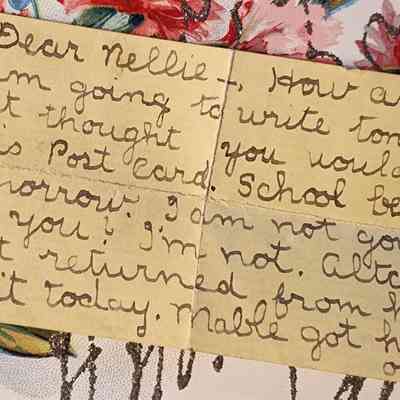 Dear Nellie-, How a
m going to write ton
t thought you would
is Post Card. School be
morrow. I am not go
you? I'm not. Alt
t returned from h
it today. Mable got h